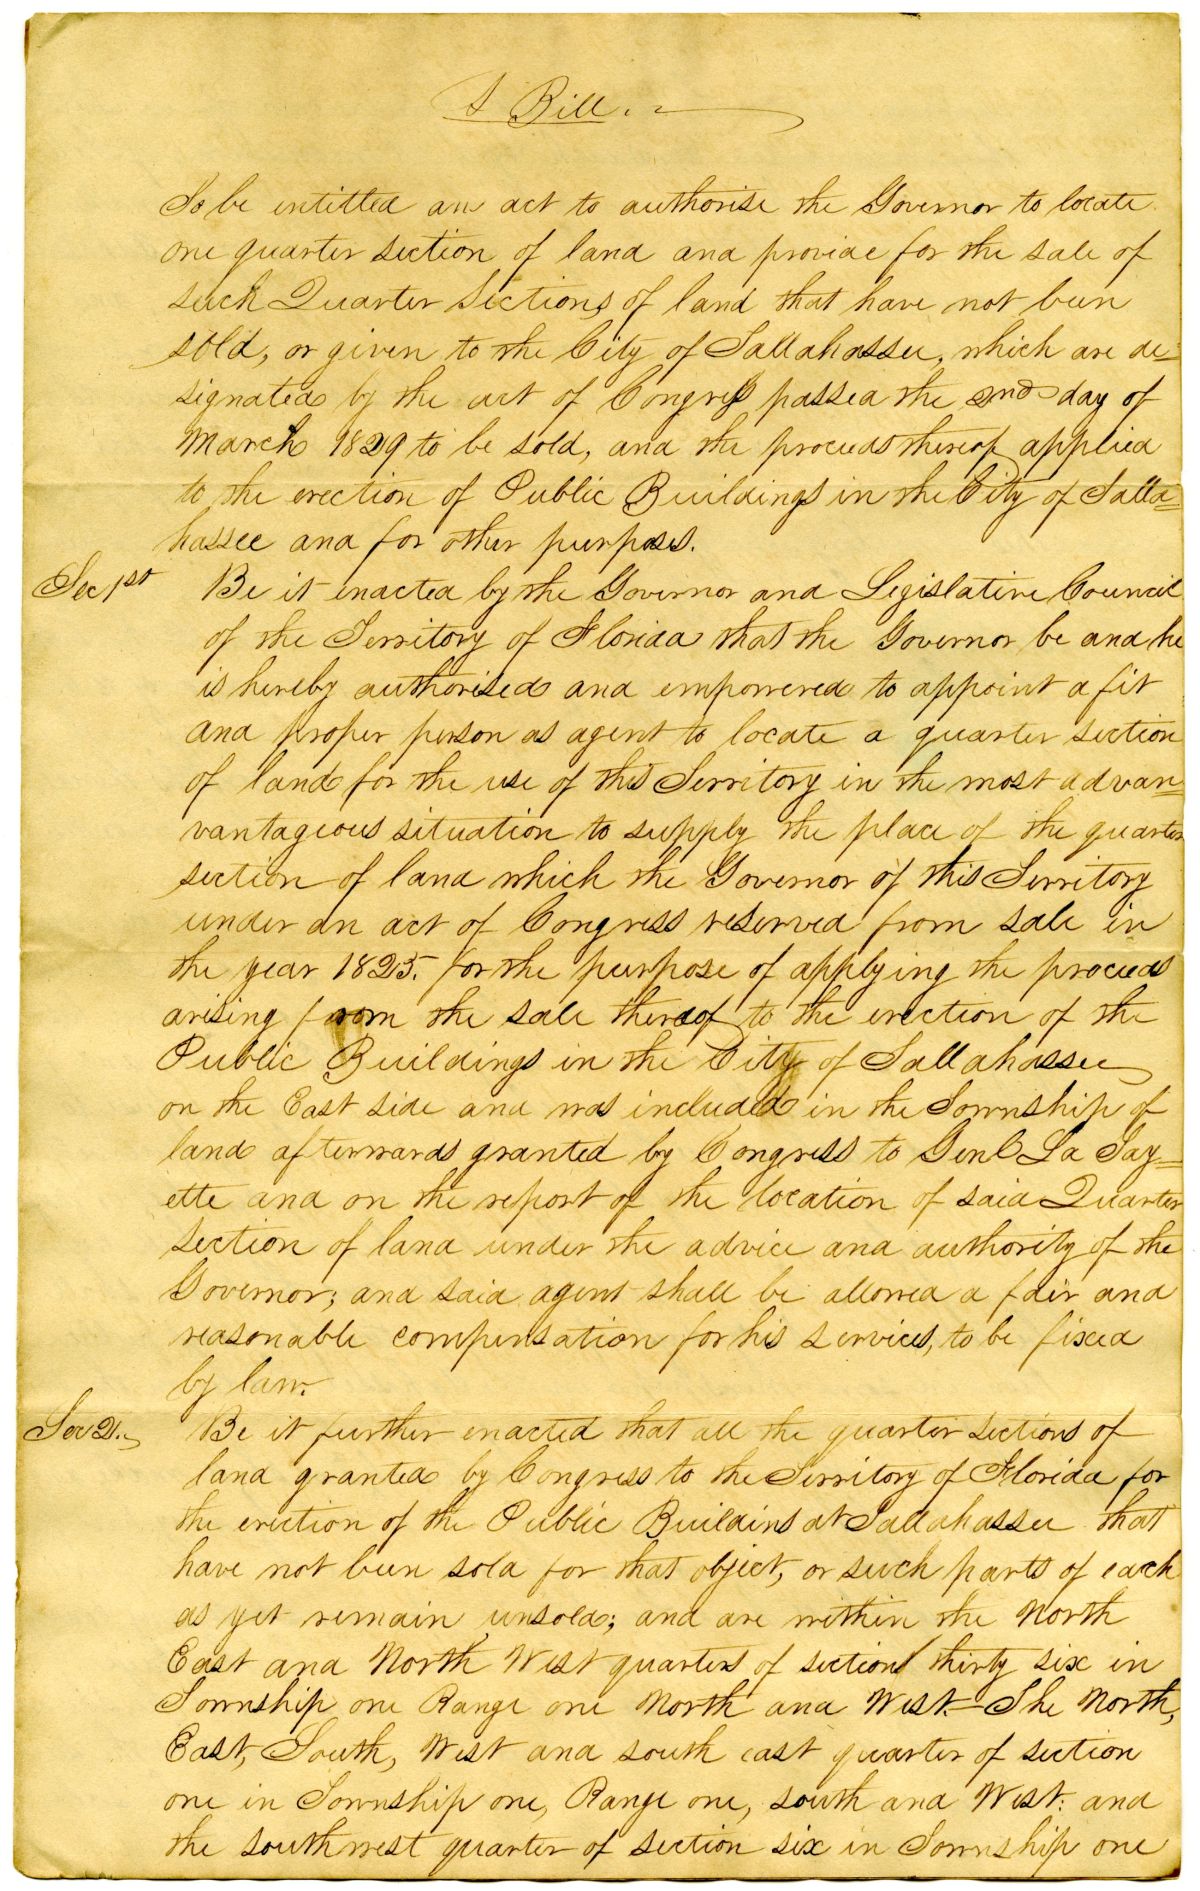 A Bill.
To be entitled an act to authorise the Governor to locate
one quarter section of land and provide for the sale of
such Quarter Sections of land that have not been
sold, or given to the City of Tallahassee, which are de=
signated by the act of Congress passed the 2nd day of
March 1829 to be sold, and the proceeds thereof applied
to the erection of Public Buildings in the City of Talla=
hassee and for other purposes.
Sec 1st Be it enacted by the Governor and Legislative Council
of the Territory of Florida that the Governor be and he
is hereby authorised and empowered to appoint a fit
and proper person as agent to locate a quarter section
of land for the use of this Territory in the most advan=
vantageous situation to supply the place of the quarter
section of land which the Governor of this Territory
under an act of Congress reserved from sale in
the year 1825. for the purpose of applying the proceeds
arising from the sale thereof to the erection of the
Public Buildings in the City of Tallahassee
on the East side and was included in the Township of
land afterwards granted by Congress to Genl La Fay=
ette and on the report of the location of said Quarter
section of land under the advice and authority of the
Governor; and said agent shall be allowed a fair and
reasonable compensation for his services, to be fixed
by law.
Sec 2. Be it further enacted that all the quarter sections of
land granted by Congress to the Territory of Florida for
the erection of the Public Buildins at Tallahassee that
have not been sold for that object, or such parts of each
as yet remain unsold; and are within the North
East and North West quarters of section thirty six in
Township one Range one North and West.- The North,
East, South, West and south east quarter of section
one in Township one, Range one, south and West: and
the southwest quarter of section six in Township one